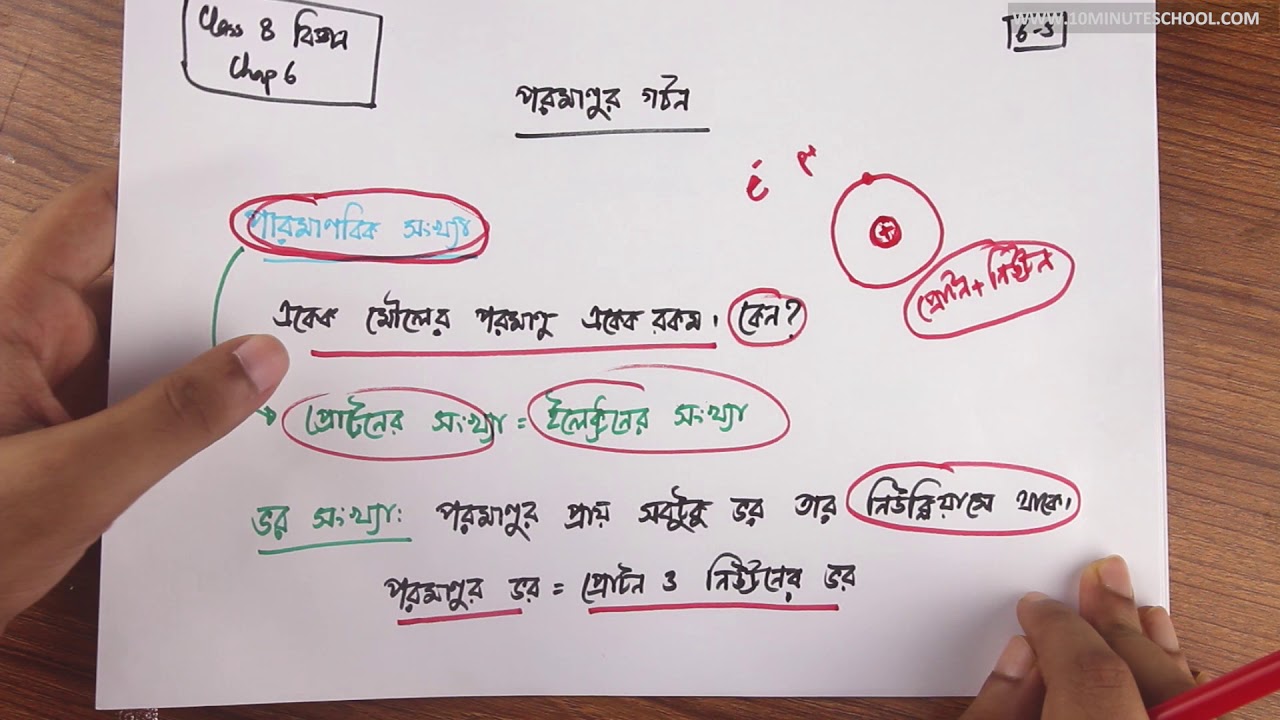 WWW.10MINUTESCHOOL.COM
Class 8 বিজ্ঞান
Chap 6
6-5
পরমাণুর গঠন
e⁻ P⁺
পারমাণবিক সংখ্যা
+
প্রোটন + নিউট্রন
একেক মৌলের পরমাণু একেক রকম। কেন?
প্রোটনের সংখ্যা = ইলেক্ট্রনের সংখ্যা
ভর সংখ্যা: পরমাণুর প্রায় সবটুকু ভর তার নিউক্লিয়াসে থাকে।
পরমাণুর ভর = প্রোটন ও নিউট্রনের ভর